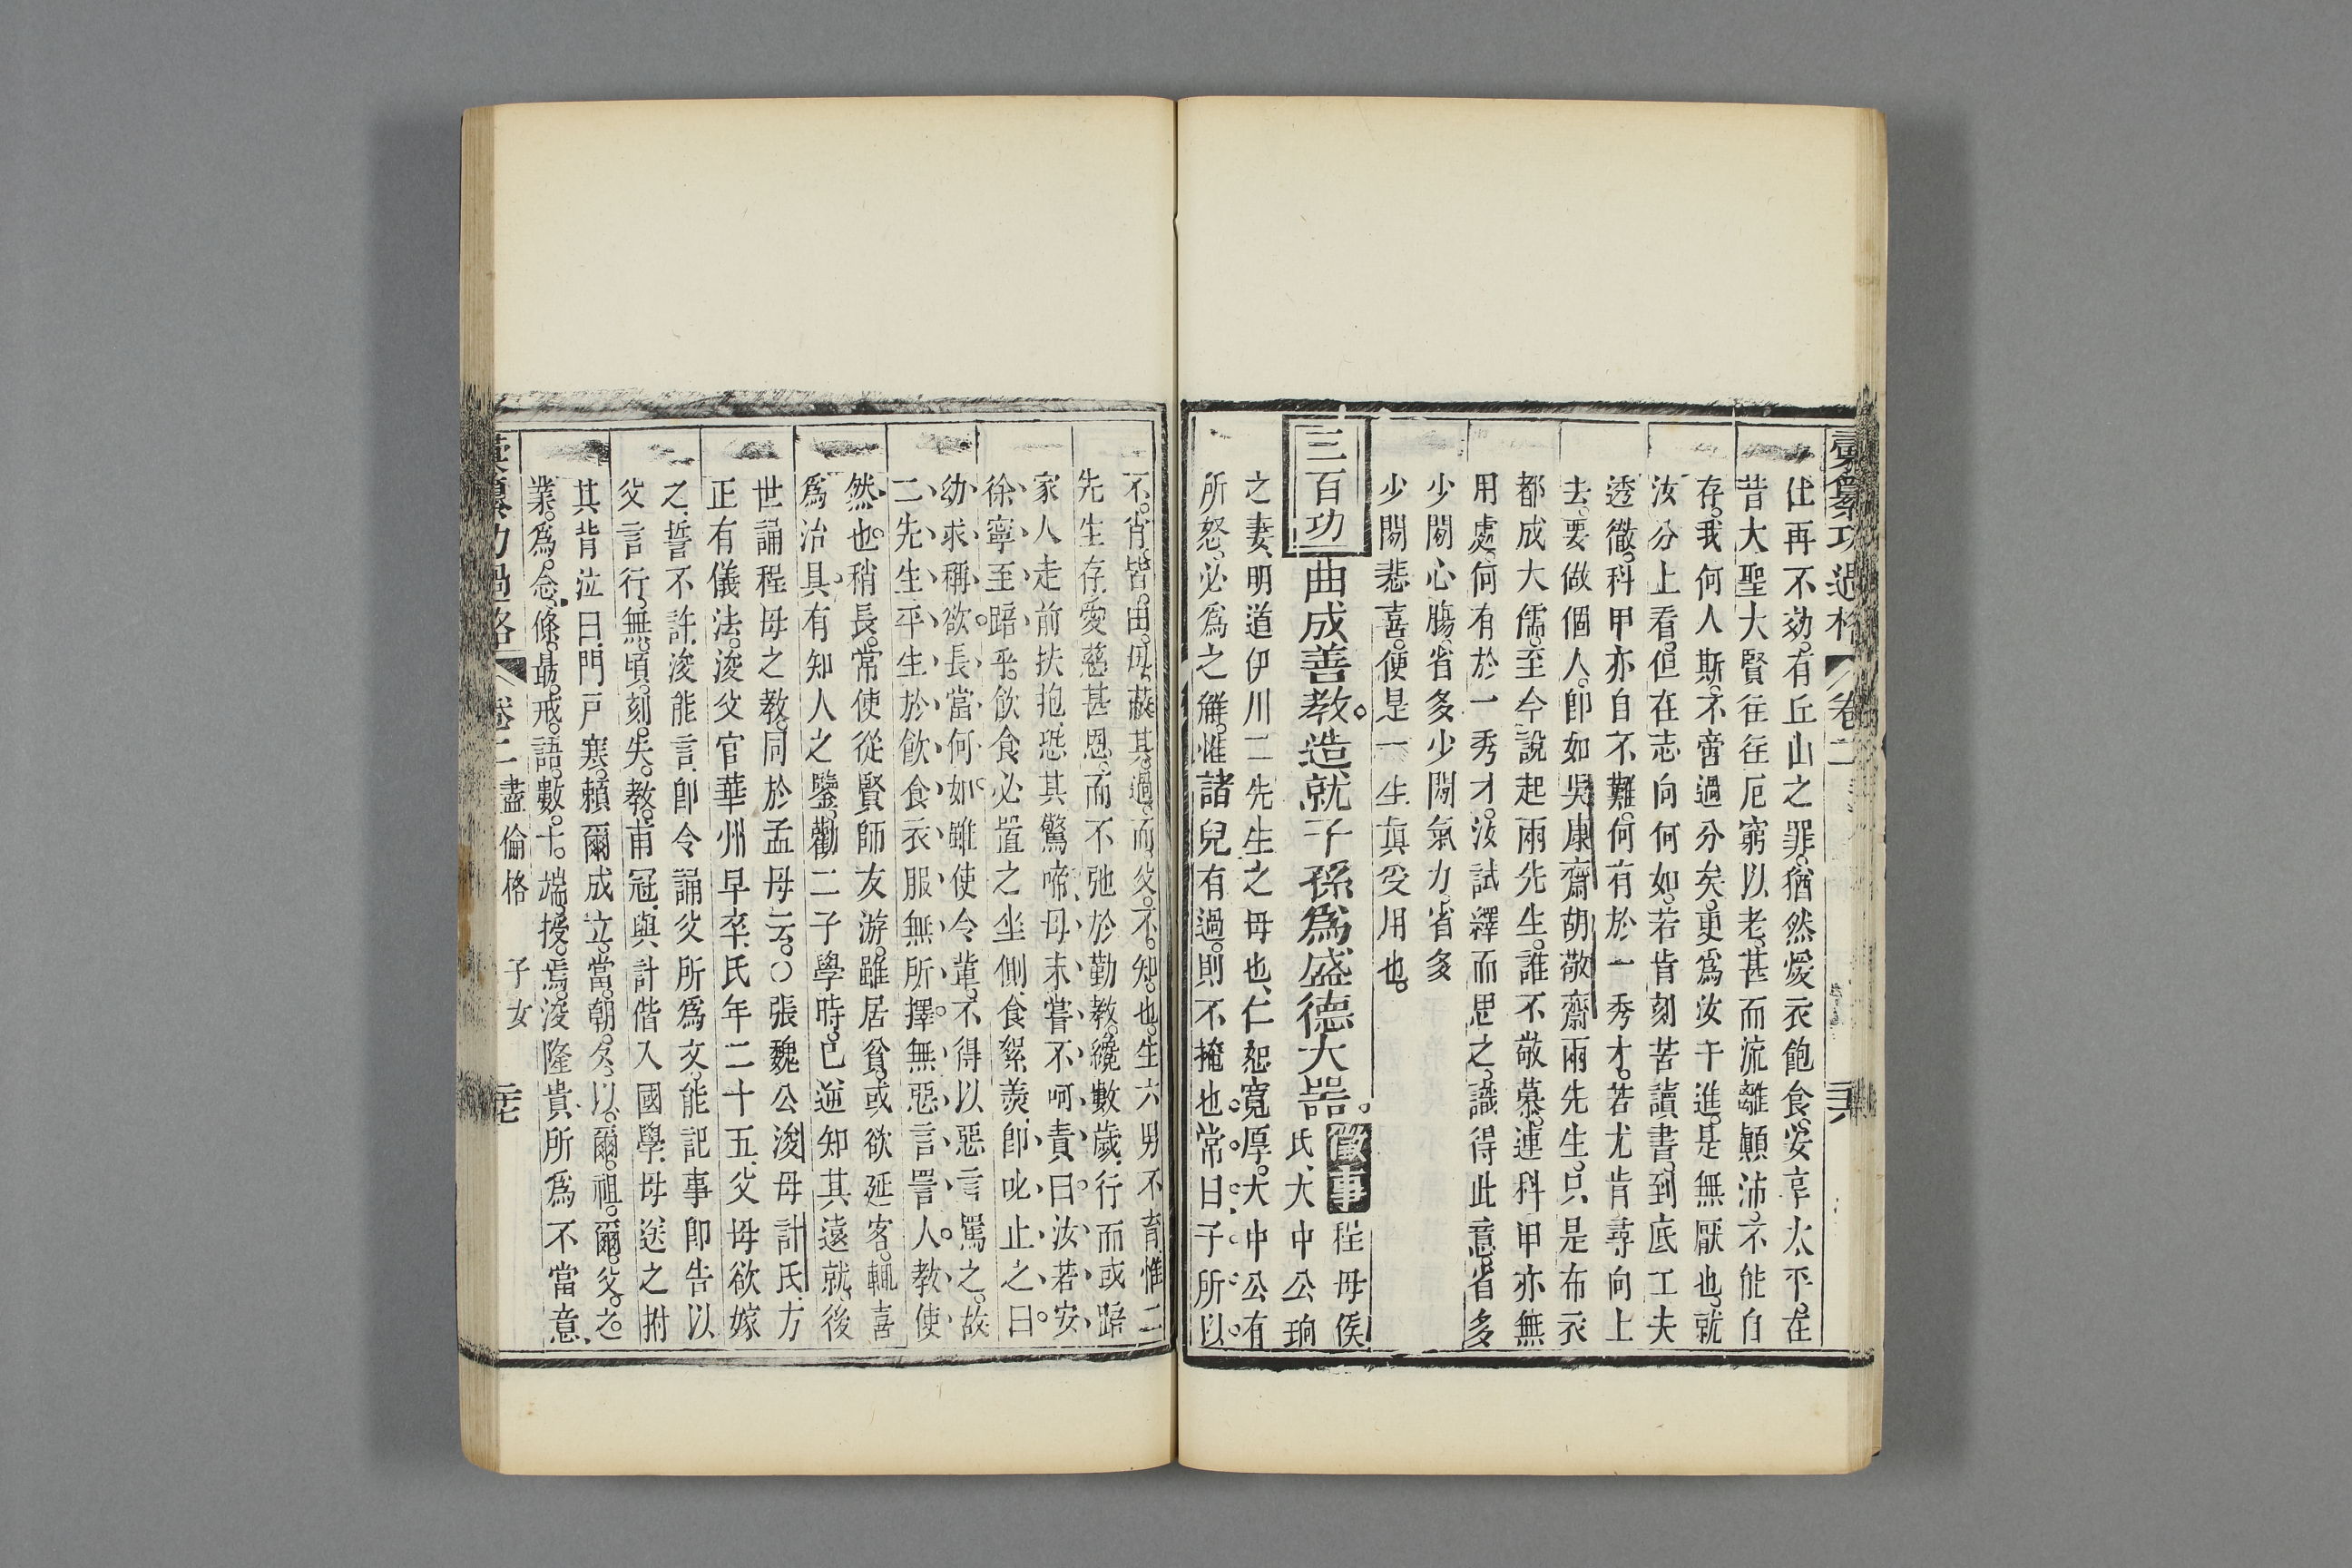 彙纂功過格 卷二 三六
仕再不効。有丘山之罪。猶然煖衣飽食。安享太平。在
昔大聖大賢。往往厄窮以老。甚而流離顛沛。不能自
存。我何人斯。不啻過分矣。更爲汝干進。是無厭也。就
汝分上看。但在志向何如。若肯刻苦讀書。到底工夫
透徹。科甲亦自不難。何有於一秀才。若尤肯尋向上
去。要做個人。卽如吳康齋胡敬齋兩先生。只是布衣
都成大儒。至今說起兩先生。誰不敬慕。連科甲亦無
用處。何有於一秀才。汝試繹而思之。識得此意。省多
少閒心腸。省多少閒氣力。省多
少閒悲喜。便是一生真受用也。
三百功 曲成善教。造就子孫爲盛德大器。徵事 程母侯
氏、大中公珦
之妻、明道伊川二先生之母也、仁恕寬厚。大中公有
所怒、必爲之解。惟諸兒有過。則不掩也。常曰。子所以
不。肖。皆。由。母。蔽。其。過。而。父。不。知。也。生六男不育。惟二
先生存。愛慈甚恩。而不弛於勤教。纔數歲、行而或踣
家人走前扶抱。恐其驚啼、母未嘗不呵責曰。汝若安
徐、寧至踣乎。飲食必置之坐側、食絮羹、卽叱止之曰。
幼求稱欲。長當何如。雖使令輩、不得以惡言罵之。故
二先生平生於飲食衣服無所擇。無惡言詈人。教使
然也。稍長。常使從賢師友游。雖居貧。或欲延客。輒喜
爲治具。有知人之鑒。勸二子學時。已逆知其遠就。後
世誦程母之教。同於孟母云。○張魏公浚母計氏、方
正有儀法。浚父官華州早卒、氏年二十五、父母欲嫁
之、誓不許、浚能言、卽令誦父所爲文。能記事卽告以
父言行。無。頃。刻。失。教。甫冠、與計偕入國學、母送之拊
其背泣曰、門戸寒。賴爾成立。當。朝。夕。以。爾。祖。爾。父。之。
業。爲。念、條。最。戒。語。數。十。端。授。焉。浚隆貴、所爲不當意、
彙纂功過格 卷二盡倫格 子女 三七